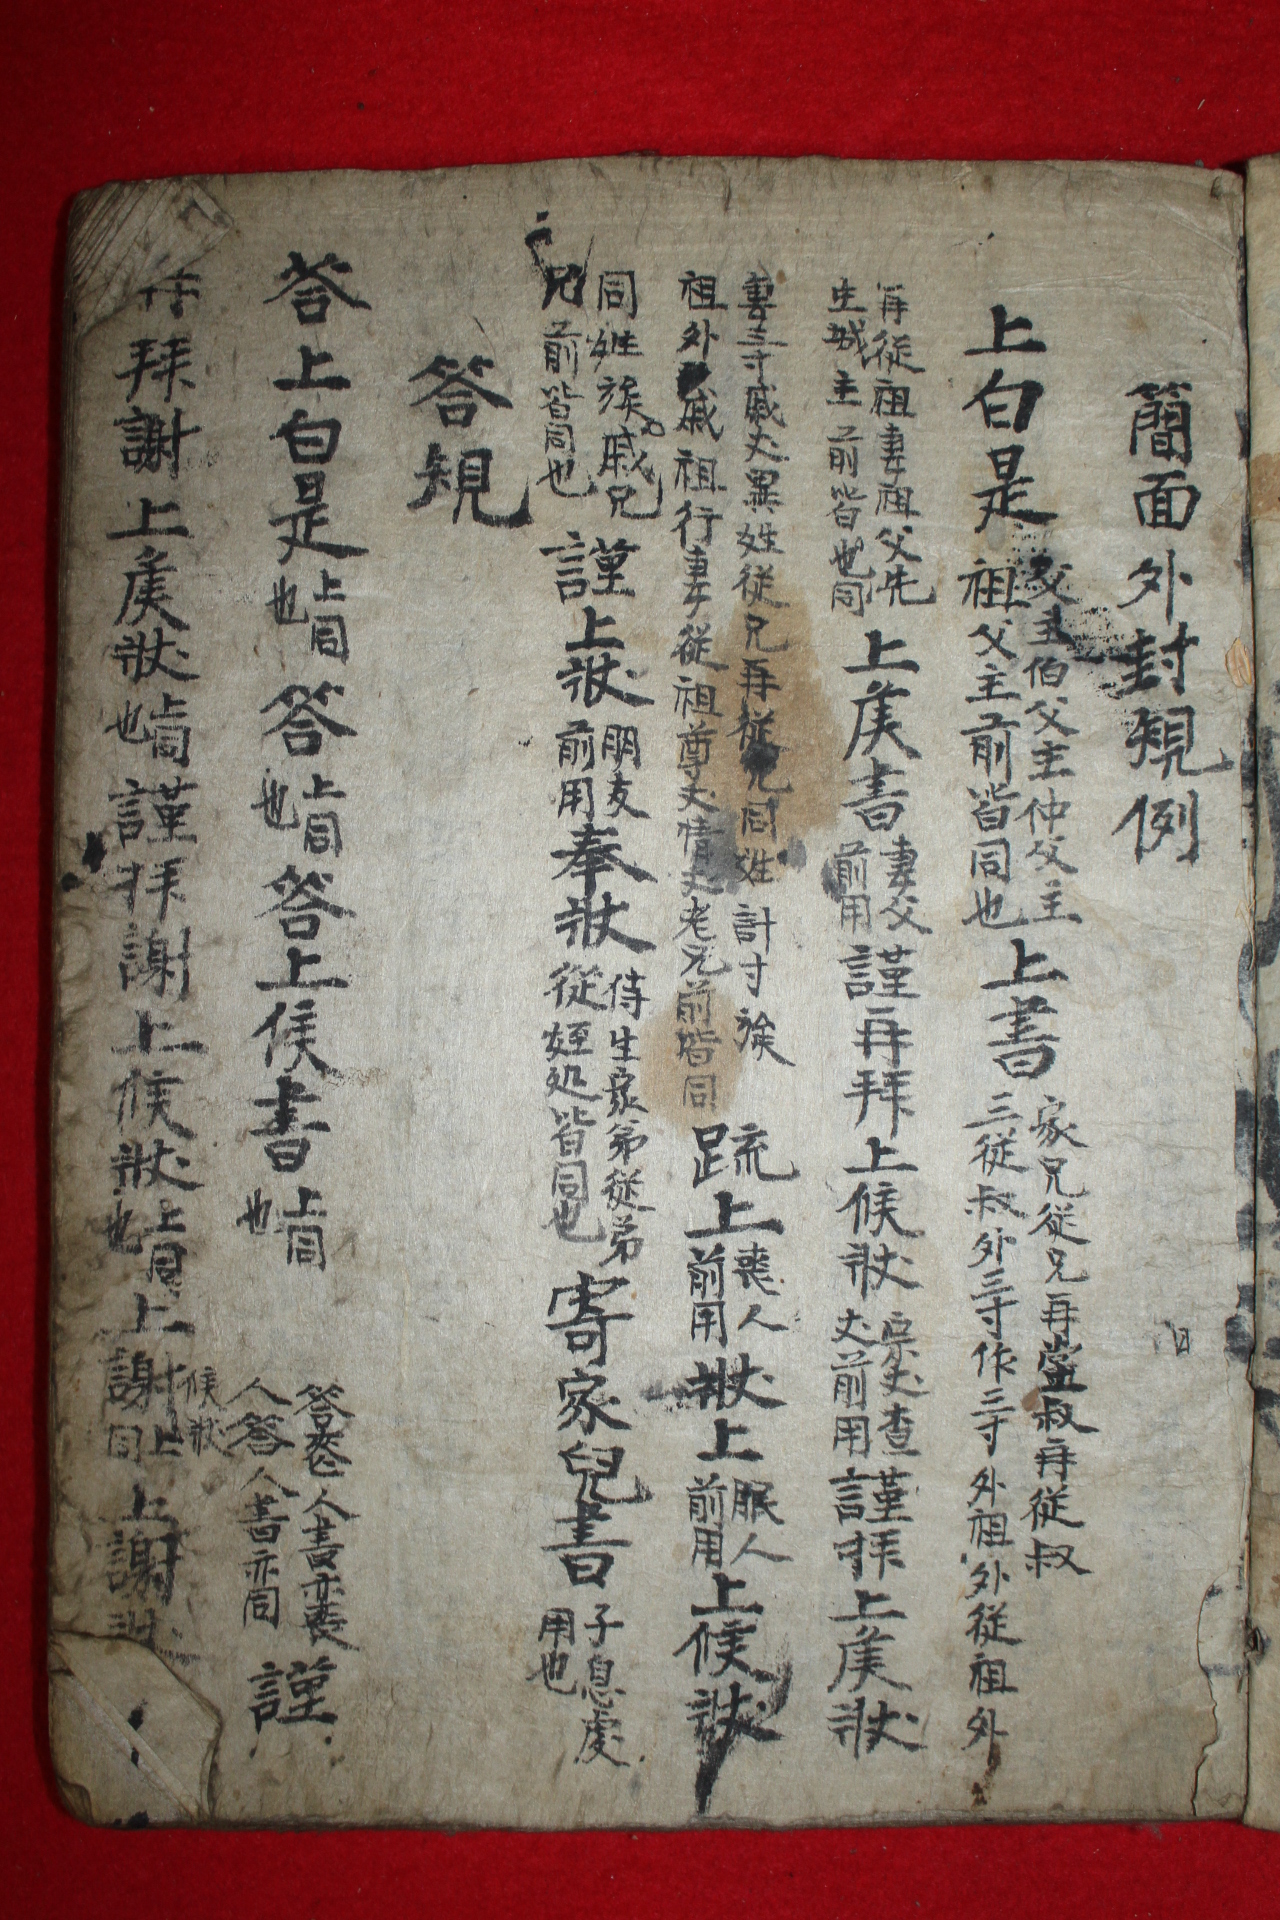 簡面外封規例
上白是 父主伯父主仲父主 祖父主前皆同也 上書 家兄從兄再堂叔再從叔 三從叔外三寸作三寸外祖外從祖外
再從祖妻祖父先 生城主前皆也同 上候書 妻父 前用 謹再拜上候狀 宗丈査 丈前用 謹拜上候狀
妻三寸戚丈異姓從兄再從兄同姓計寸族 祖外戚祖行妻從祖尊丈情丈老兄前皆同 疏上 喪人 前用 狀上 服人 前用 上候狀
同姓族戚兄 兄前皆同也 謹上狀 朋友 前用 奉狀 侍生家弟從弟 從姪処皆同也 寄家兒書 子息處 用也
答規
答上白是 上同 也 答 上同 也 答上候書 上同 也 答喪人書亦喪 人答人書亦同 謹
再拜謝上候狀 上同 也 謹拜謝上候狀 上同 也 上謝 候狀上同 上謝狀